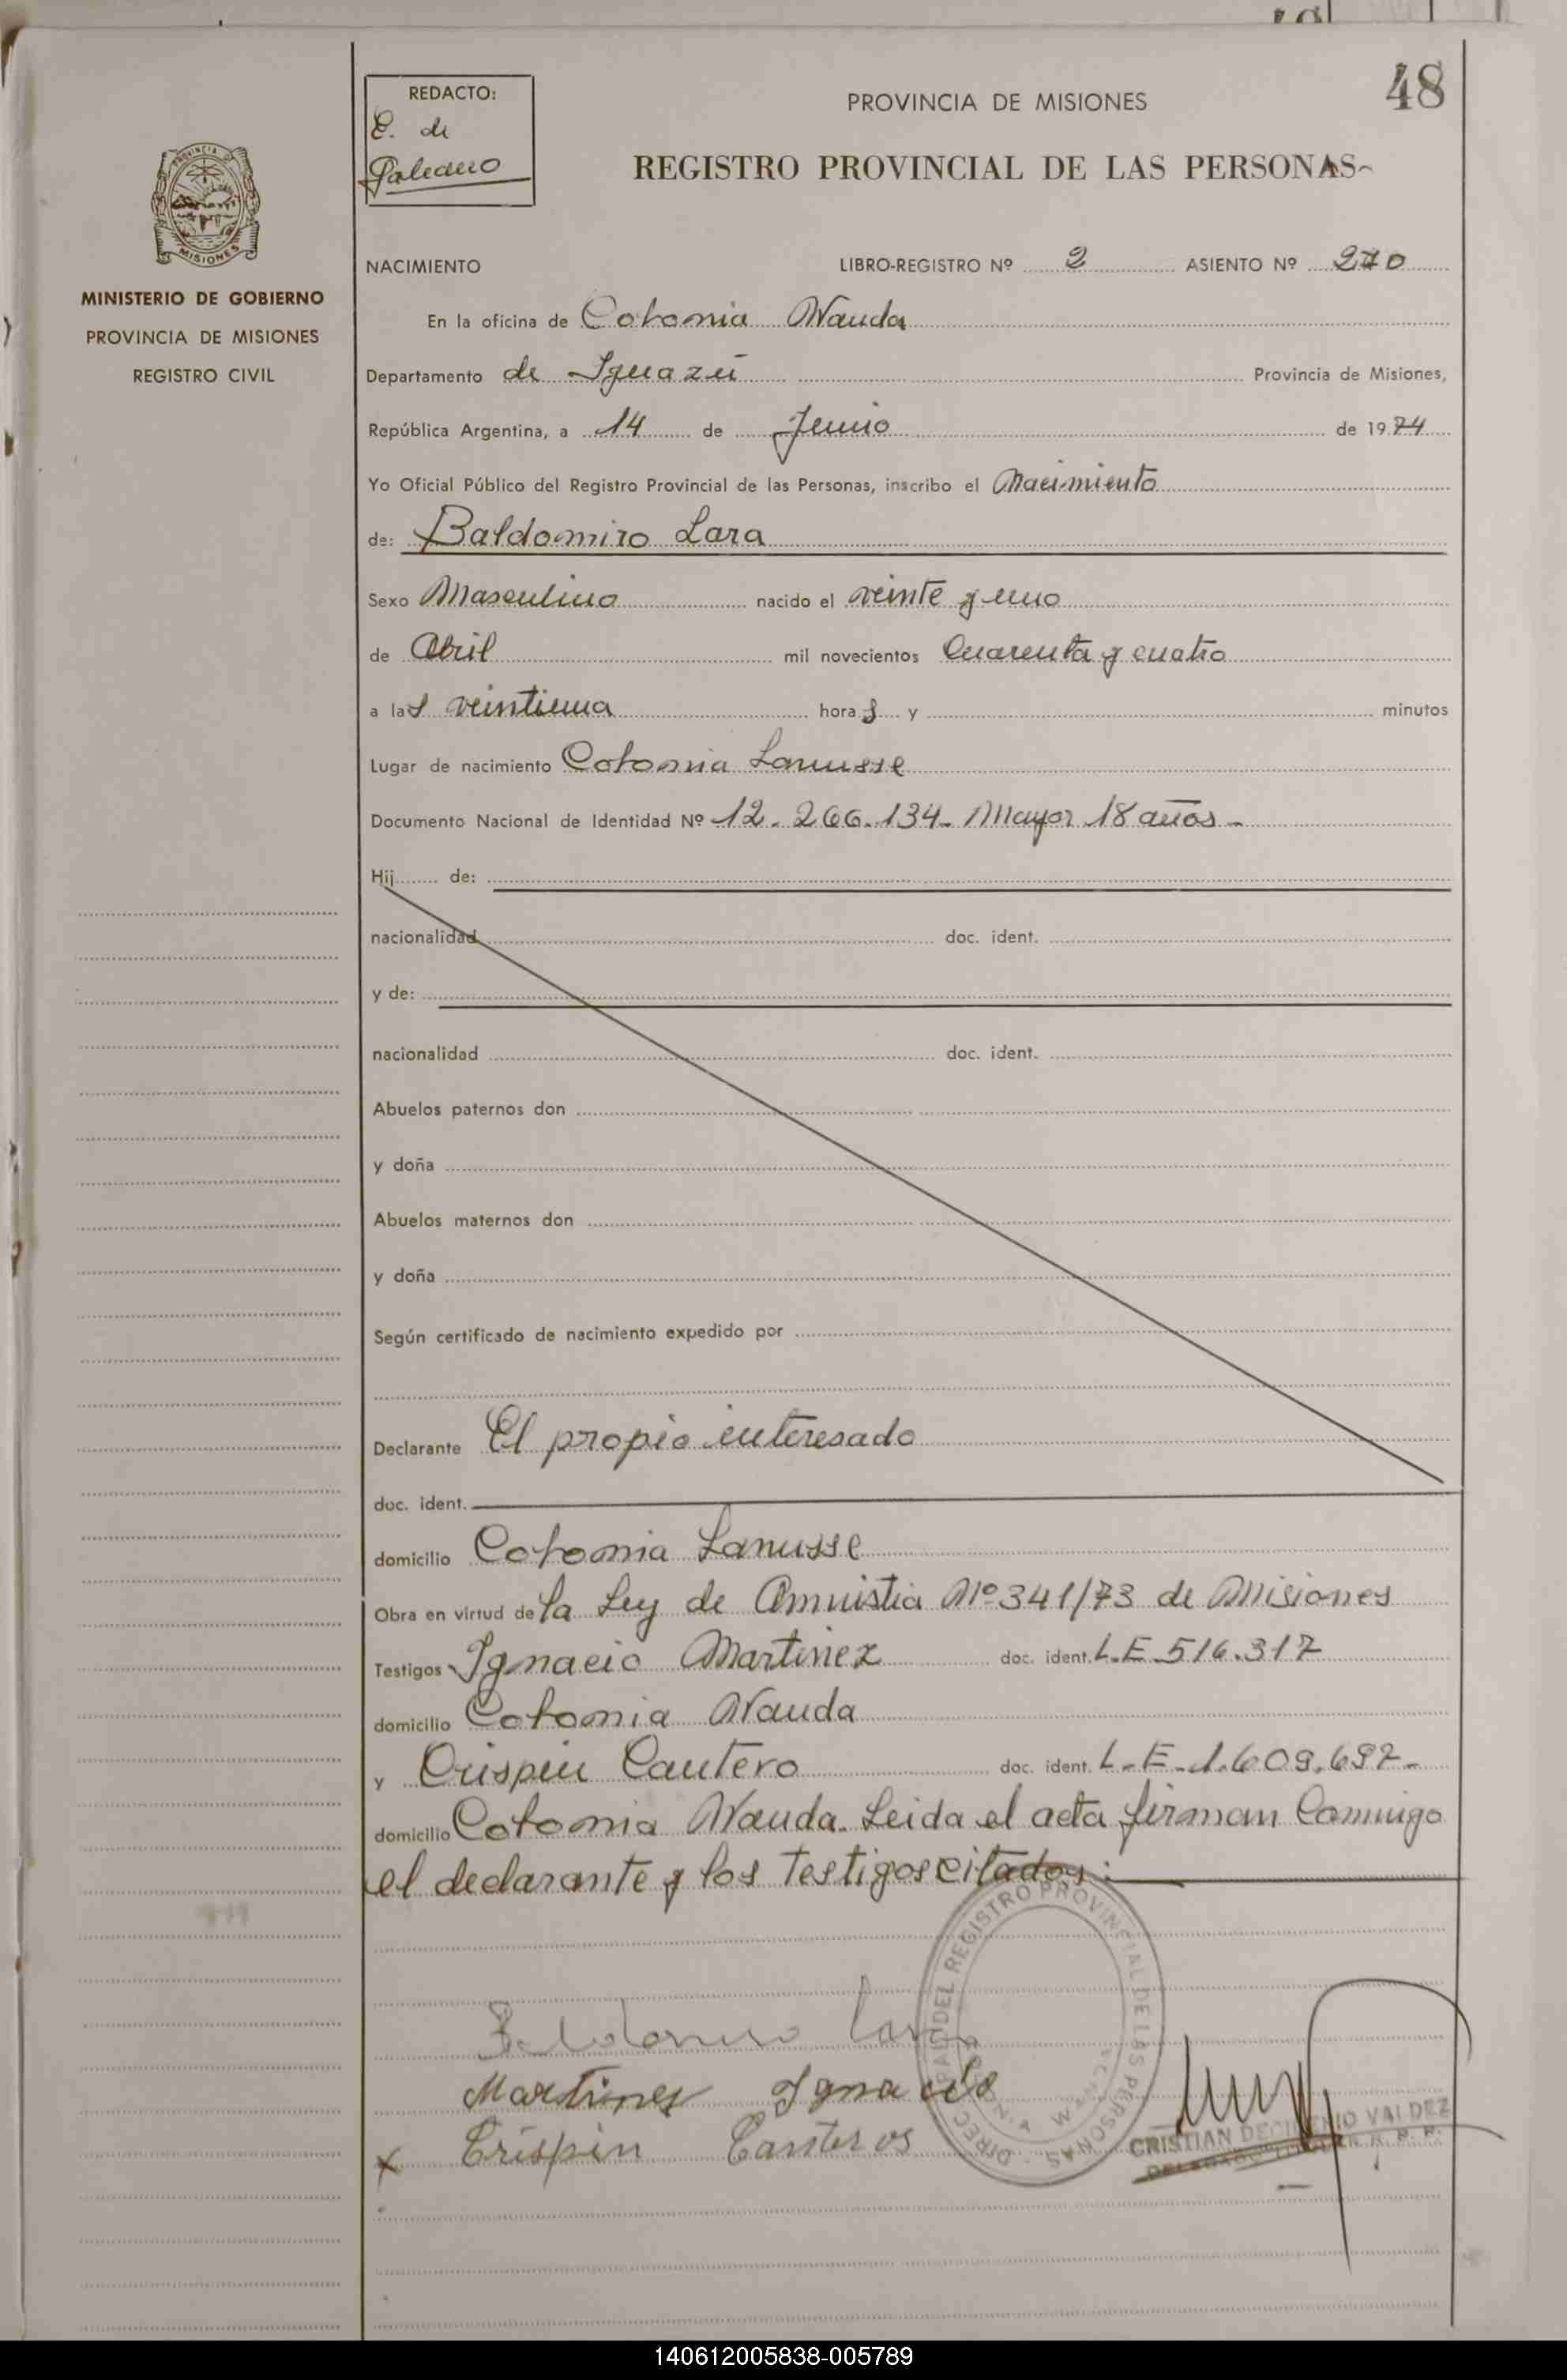 48
REDACTO:
E. de
Galeano
PROVINCIA DE MISIONES
REGISTRO PROVINCIAL DE LAS PERSONAS
PROVINCIA DE
MISIONES
MINISTERIO DE GOBIERNO
PROVINCIA DE MISIONES
REGISTRO CIVIL
NACIMIENTO LIBRO-REGISTRO Nº 2 ASIENTO Nº 270
En la oficina de Colonia Wanda
Departamento de Iguazú Provincia de Misiones,
República Argentina, a 14 de Junio de 1974
Yo Oficial Público del Registro Provincial de las Personas, inscribo el Nacimiento
de: Baldomiro Lara
Sexo Masculino nacido el veinte y uno
de Abril mil novecientos Cuarenta y cuatro
a las veintiuna hora s y minutos
Lugar de nacimiento Colonia Lanusse
Documento Nacional de Identidad Nº 12.266.134- Mayor 18 años-
Hij de:
nacionalidad doc. ident.
y de:
nacionalidad doc. ident.
Abuelos paternos don
y doña
Abuelos maternos don
y doña
Según certificado de nacimiento expedido por
Declarante El propio interesado
doc. ident.
domicilio Colonia Lanusse
Obra en virtud de la Ley de Amnistia Nº 341/73 de Misiones
Testigos Ignacio Martinez doc. ident. L.E 516.317
domicilio Colonia Wanda
y Crispin Cantero doc. ident. L-E-1.609.697-
domicilio Colonia Wanda. Leida el acta firman Conmigo
el declarante y los Testigos citados:
DIREC RAL DEL REGISTRO PROVINCIAL DE LAS PERSONAS
Baldomiro Lara
Martines Ignacio
x Crispin Canteros
CRISTIAN DECIDERIO VALDEZ
140612005838-005789